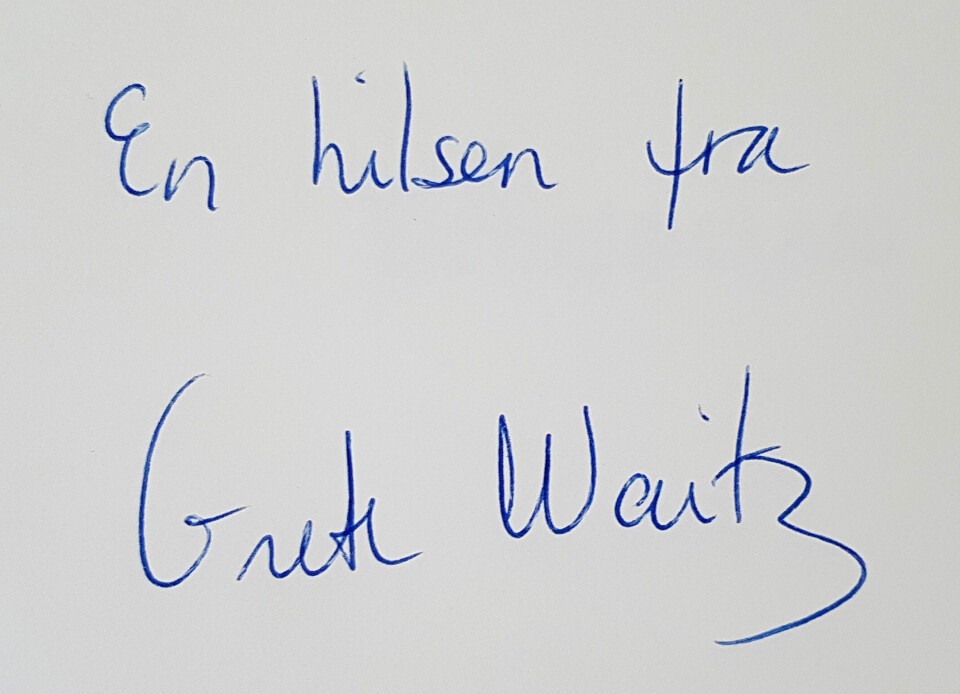 En hilsen fra
Grete Waitz